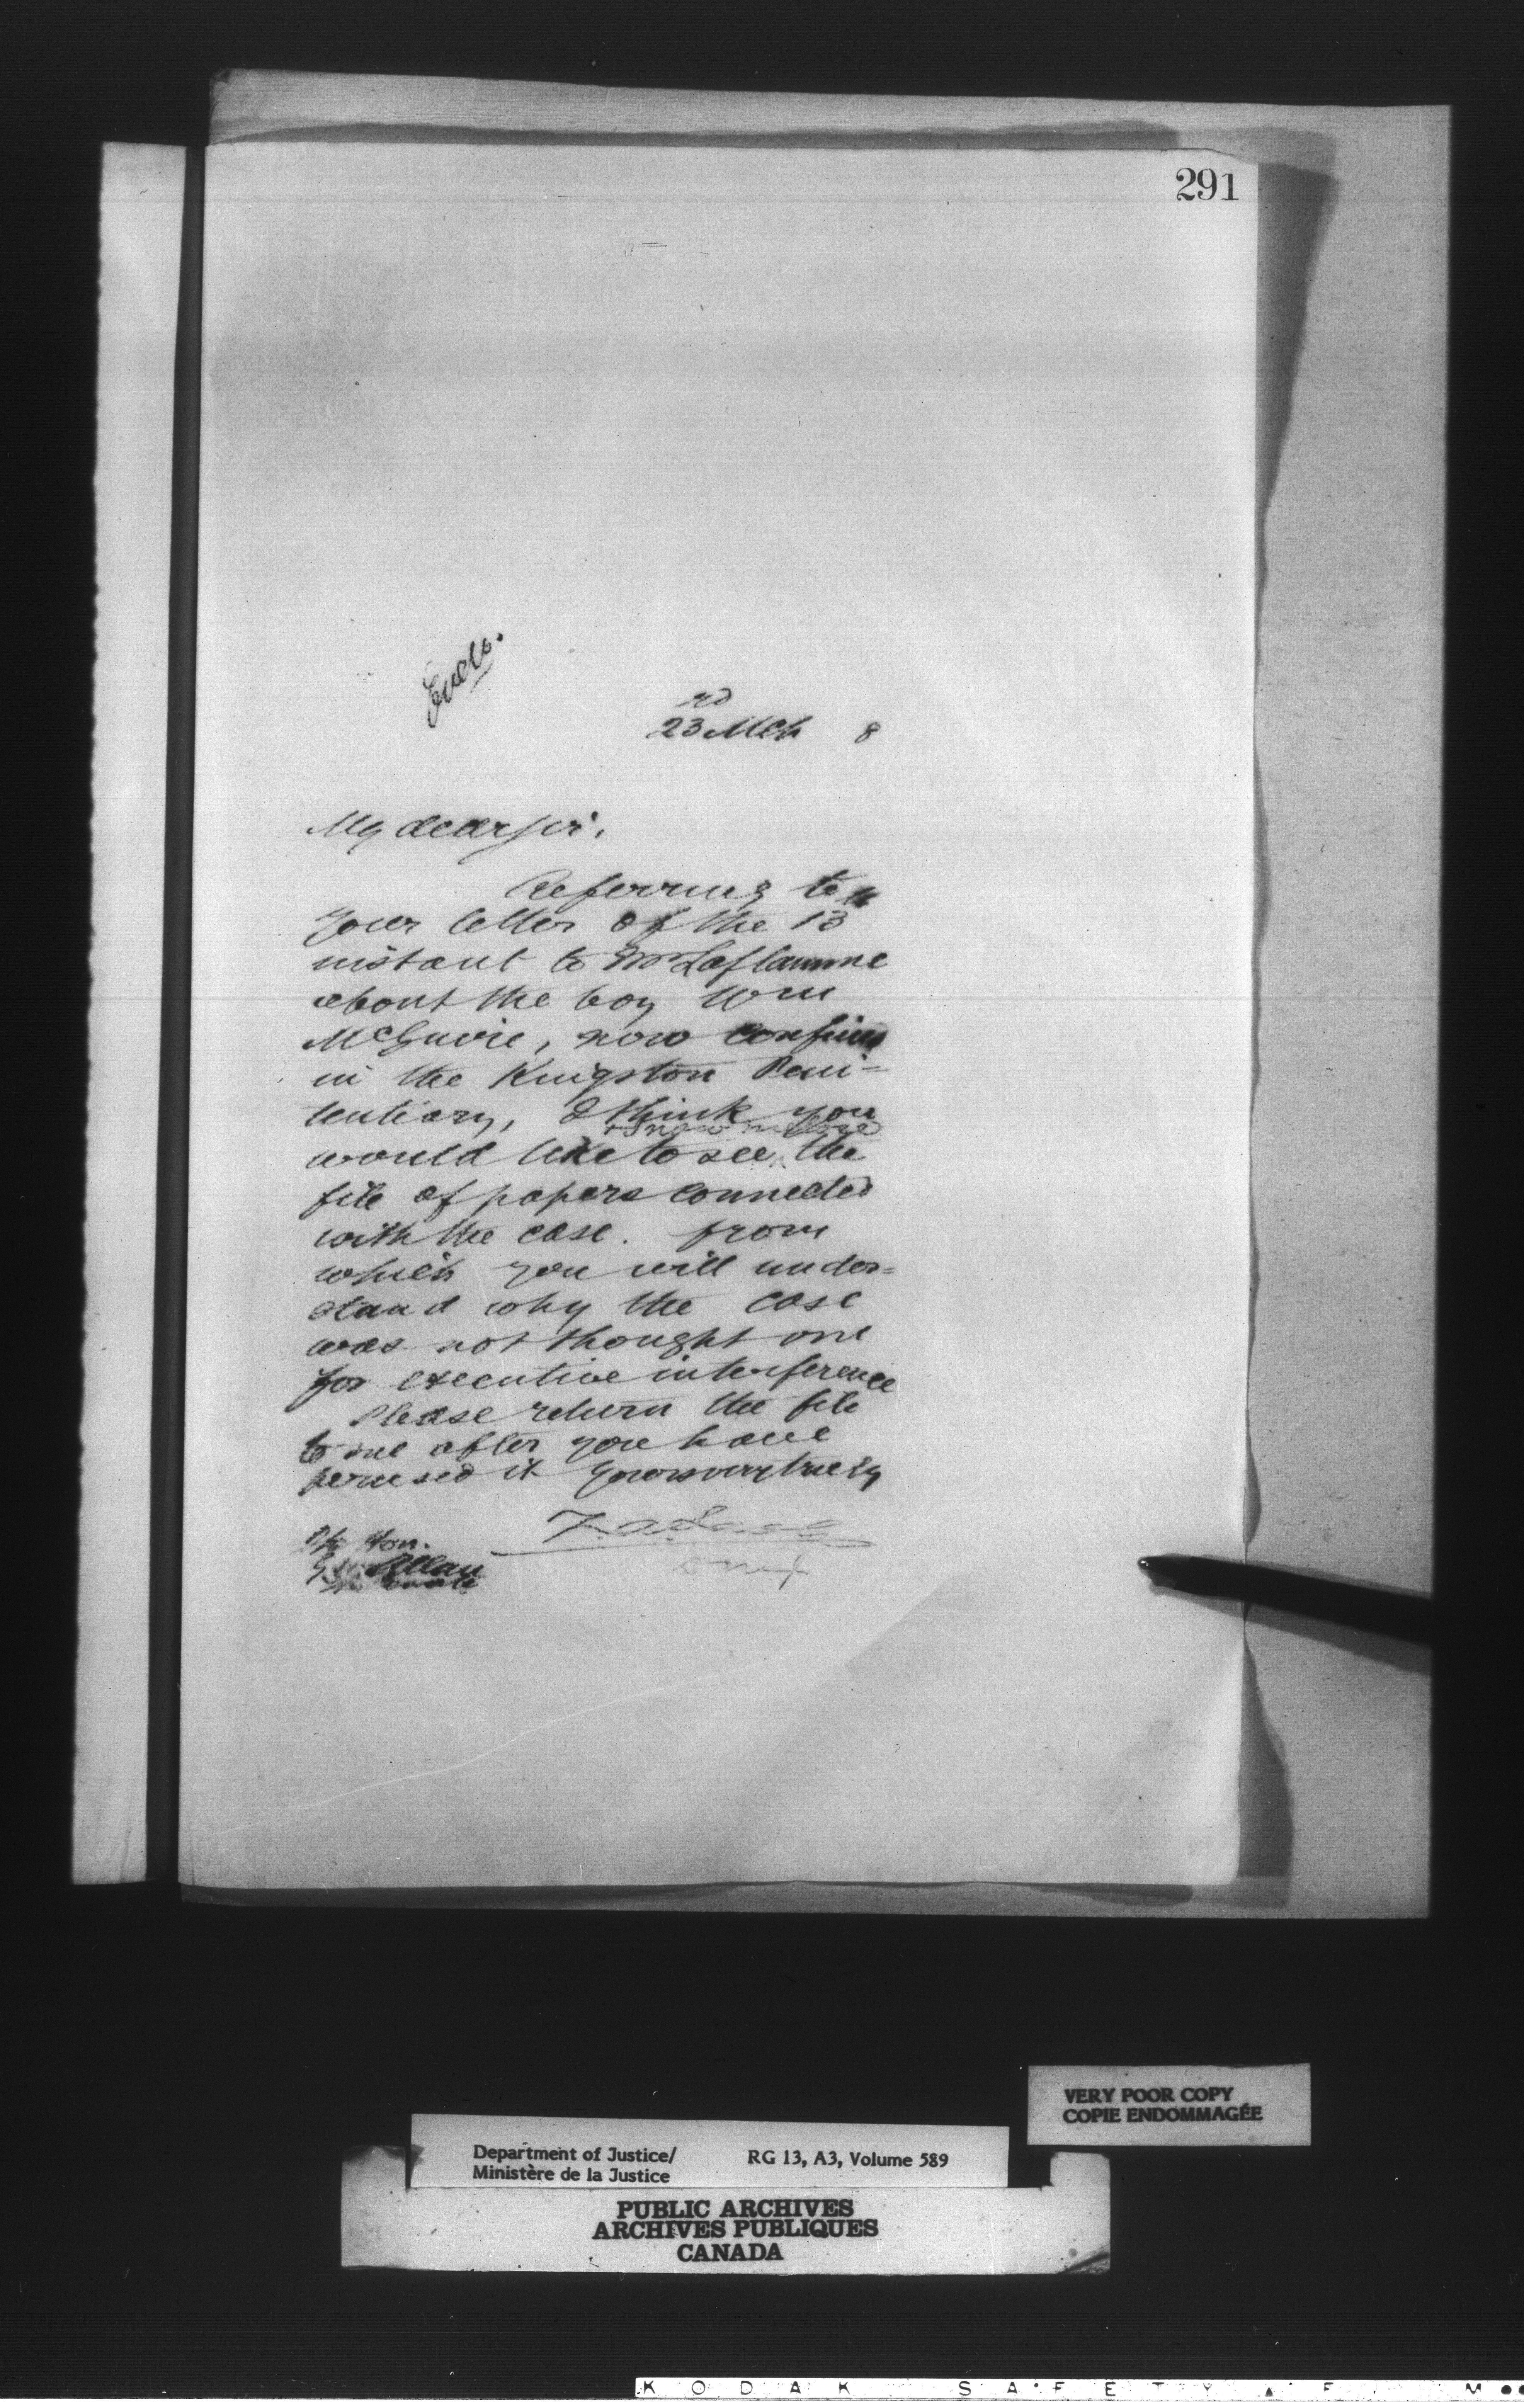 291
Encls.
rd
23 Mch 8
My dear Sir,
Referring to
your letter of the 13th
instant to Mr Laflamme
about the boy Wm
McGuire, now confined
in the Kingston Peni=
tentiary, I think you
would like to see, the
& I now enclose
file of papers connected
with the case. from
which you will under=
stand why the case
was not thought one
for executive interference
Please return the file
to me after you have
perused it Yours very truly
Z A Lash
The Hon.
G W Allan
Senate
VERY POOR COPY
COPIE ENDOMMAGÉE
Department of Justice/ RG 13, A3, Volume 589
Ministère de la Justice
PUBLIC ARCHIVES
ARCHIVES PUBLIQUES
CANADA
KODAK SAFETY